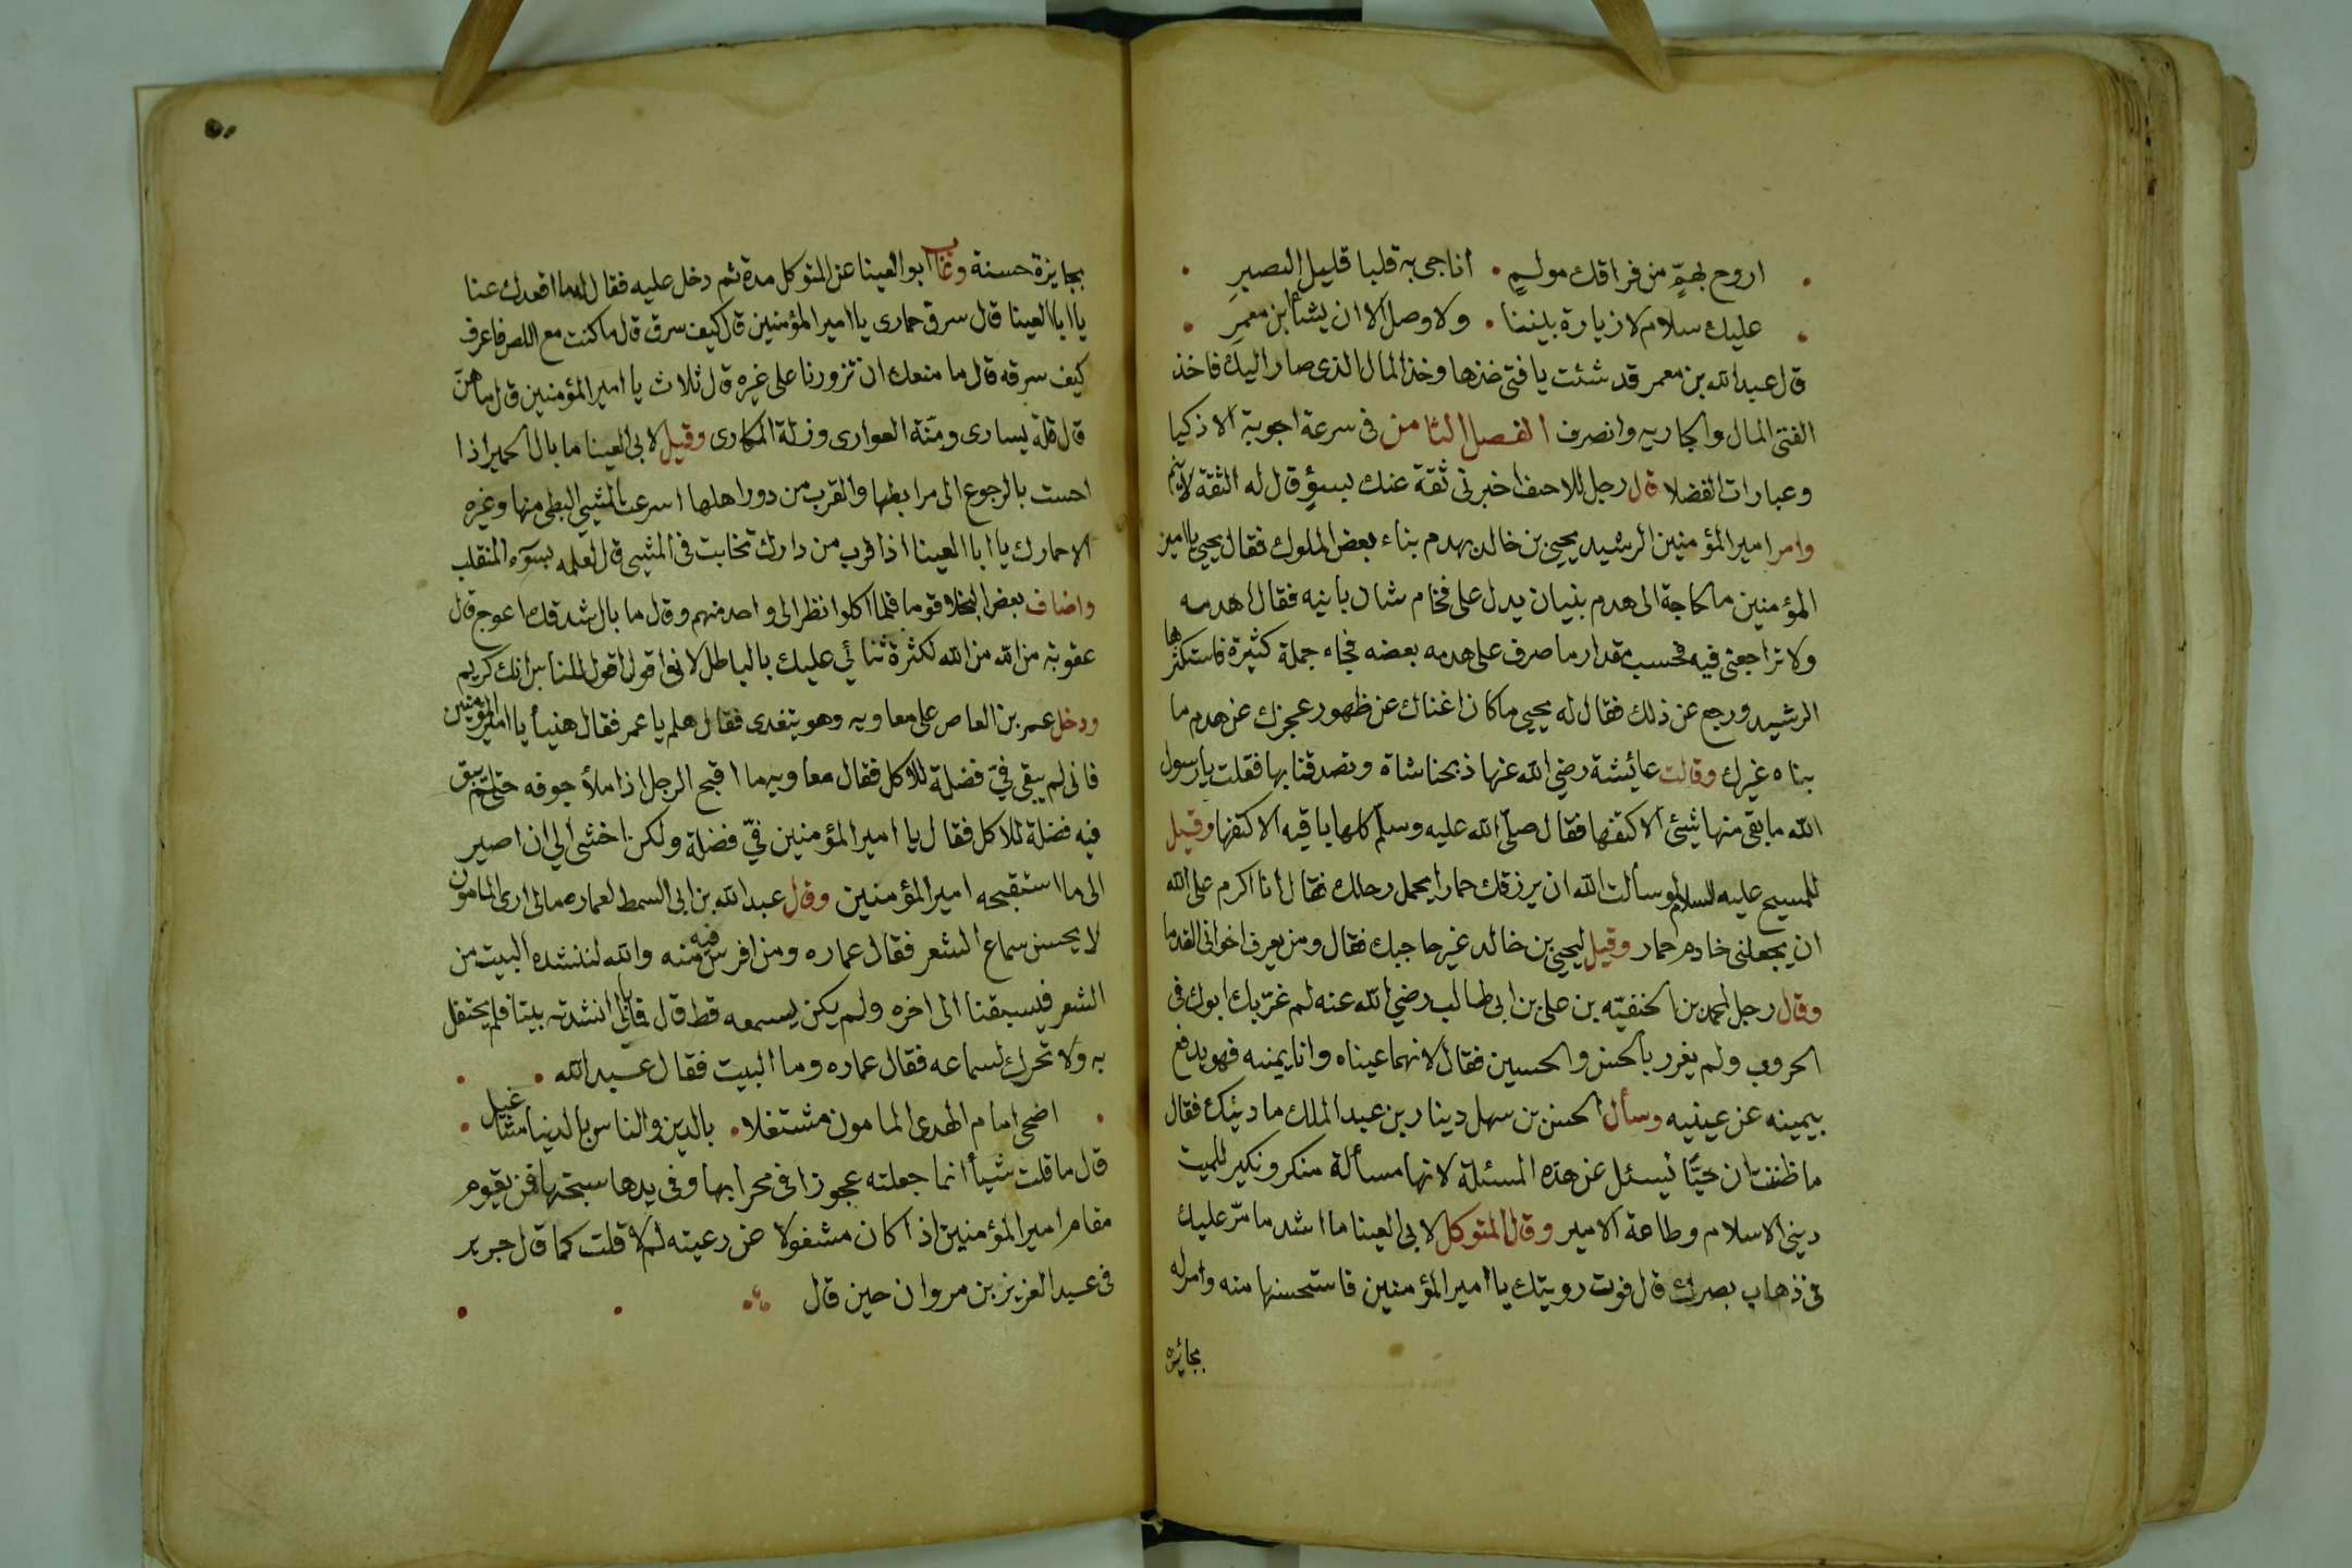 اروح بهمّ من فراقك مولم • اناجى به قلبا قليل البصير
عليك سلام لا زيارة بيننا • ولا وصل الا ان يشأ ابن معمر
قال عبد الله بن معمر قد شئت يا فتى خذها وخذ المال الذى صار اليك فاخذ
الفتى المال والجاريه وانصرف الفصل الثامن فى سرعة اجوبة الاذكيا
وعبارات الفضلا قال رجل للاحنف اخبرنى ثقة عنك بسوٍ قال له الثقة لا ينم
وامر امير المؤمنين الرشيد يحيى بن خالد بهدم بناء بعض الملوك فقال يحيى يا امير
المؤمنين ما لحاجة الى هدم بنيان يدل على فخام شان بانيه فقال اهدمه
ولا تراجعنى فيه فحسب مقدار ما صرف على هدمه بعضه فجاء جملة كثيرة فاستكثرها
الرشيد ورجع عن ذلك فقال له يحيى ما كان اغناك عن ظهور عجزك عن هدم ما
بناه غيرك وقالت عائشة رضى الله عنها ذبحنا شاة وتصدقنا بها فقلت يا رسول
الله ما بقى منها شئ الا كتفها فقال صلّى الله عليه وسلّم كلها باقيه الا كتفها وقيل
للمسيح عليه السلام لو سألت الله ان يرزقك حمارا يحمل رحلك فقال انا اكرم على الله
ان يجعلنى خادم حمار وقيل ليحيى بن خالد غير حاجبك فقال ومن يعرف اخوانى القدما
وقال رجل لمحمد بن الحنفيّه بن على بن ابى طالب رضى الله عنه لم غرّ بك ابوك فى
الحروب ولم يغرر بالحسن والحسين فقال لانهما عيناه وانا يمينه فهو يدفع
بيمينه عن عينيه وسأل الحسن بن سهل دينار بن عبد الملك ما دينك فقال
ما ظننت ان حيًّا يسئل عن هذه المسئلة لانها مسألة منكر ونكير للميت
دينى الاسلام وطاعة الامير وقال المتوكل لابى العينا ما اشد ما مرّ عليك
فى ذهاب بصرك قال فوت رويتك يا امير المؤمنين فاستحسنها منه وامر له
بجائزه
بجايزة حسنة وغاب ابو العينا عن المتوكل مدة ثم دخل عليه فقال له ما اقعدك عنا
يا ابا العينا قال سرق حمارى يا امير المؤمنين قال كيف سرق قال ما كنت مع اللص فاعرف
كيف سرقه قال ما منعك ان تزورنا على غيره قال ثلاث يا امير المؤمنين قال ما هنّ
قال قلة يسارى ومنّة العوارى وذلة المكارى وقيل لابى العينا ما بال الحمير اذا
احست بالرجوع الى مرابطها والقرب من دور اهلها اسرعت المشى البطى منها وغيره
الا حمارك يا ابا العينا اذا قرب من دارك تخابت فى المشيى قال لعلمه بسوء المنقلب
واضاف بعض البخلا قوما فلما اكلوا نظر الى واحد منهم وقال ما بال شدقك اعوج قال
عقوبة من الله من الله لكثرة ثنائي عليك بالباطل لانى اقول اقول للناس انك كريم
ودخل عمر بن العاص على معاويه وهو يتغدى فقال هلم يا عمر فقال هنيأ يا امير المؤمنين
فانى لم يبقى فيّ فضلة للاكل فقال معاويه ما اقبح الرجل اذا ملأ جوفه حتى لم يبق
فيه فضلة للاكل فقال يا امير المؤمنين فيّ فضلة ولكن اخشى الى ان اصير
الى ما استقبحه امير المؤمنين وقال عبد الله بن ابى السمط لعماره مالى ارى المامون
لا يحسن سماع الشعر فقال عماره ومن افرس فيه منه والله لننشده البيت من
الشعر فيسبقنا الى اخره ولم يكن يسمعه قط قال فانى انشدته بيتا فلم يحتفل
به ولا تحرك لسماعه فقال عماره وما البيت فقال عبد الله •
اضحى امام الهدى المامون مشتغلا • بالدين والناس بالدنيا مشاغيل
قال ما قلت شيأ انما جعلته عجوزا فى محرابها وفى يدها سبحتها فمن يقوم
مقام امير المؤمنين اذا كان مشغولا عن رعيته لم لا قلت كما قال جرير
فى عبد العزيز بن مروان حين قال